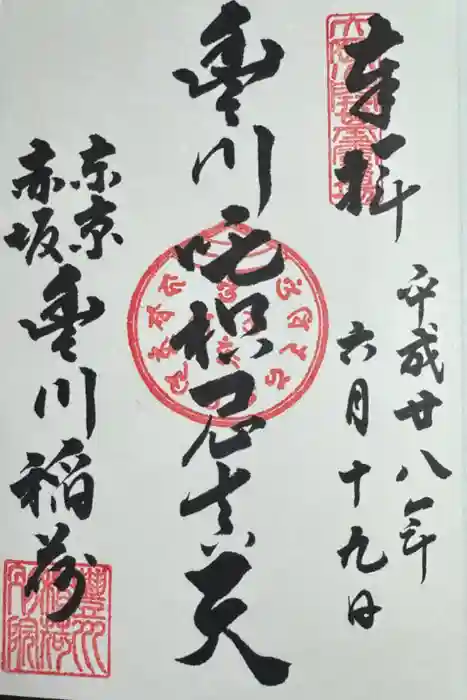 奉拝
平成廿八年
六月十九日
豊川吒枳尼真天
東京
赤坂
豊川稲荷